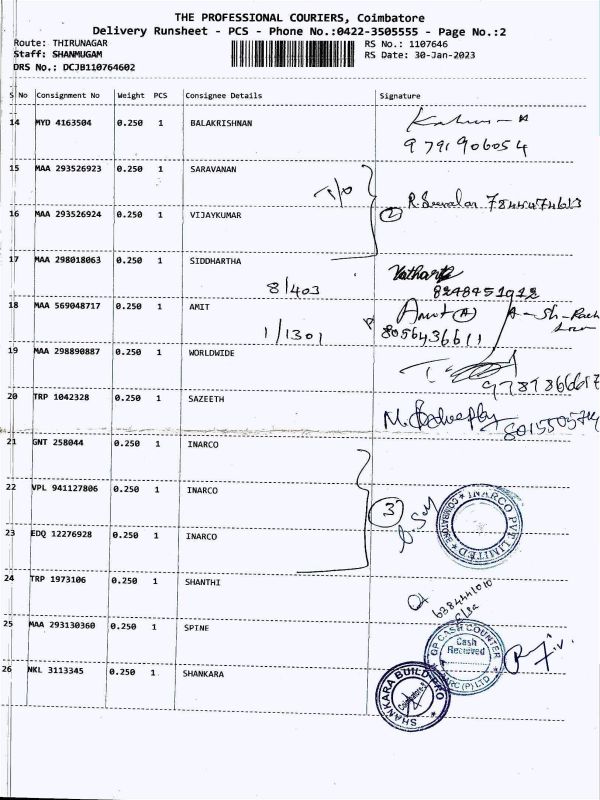 THE PROFESSIONAL COURIERS, Coimbatore
Delivery Runsheet - PCS - Phone No.:0422-3505555 - Page No.:2
Route: THIRUNAGAR RS No.: 1107646
Staff: SHANMUGAM RS Date: 30-Jan-2023
DRS No.: DCJB110764602
S No Consignment No Weight PCS Consignee Details Signature
14 MYD 4163504 0.250 1 BALAKRISHNAN
9791906054
15 MAA 293526923 0.250 1 SARAVANAN
T/O
2 7844474613
16 MAA 293526924 0.250 1 VIJAYKUMAR
17 MAA 298018063 0.250 1 SIDDHARTHA
8/403 8248451912
18 MAA 569048717 0.250 1 AMIT Amit (A)
1/1301 8056436611
19 MAA 298890887 0.250 1 WORLDWIDE
20 TRP 1042328 0.250 1 SAZEETH
21 GNT 258044 0.250 1 INARCO
22 VPL 941127806 0.250 1 INARCO
3 INARCO PVT LIMITED COIMBATORE
23 EDQ 12276928 0.250 1 INARCO
24 TRP 1973106 0.250 1 SHANTHI
25 MAA 293130360 0.250 1 SPINE
GP CASH COUNTER
Cash
Received
26 NKL 3113345 0.250 1 SHANKARA
SHANKARA BUILD PRO